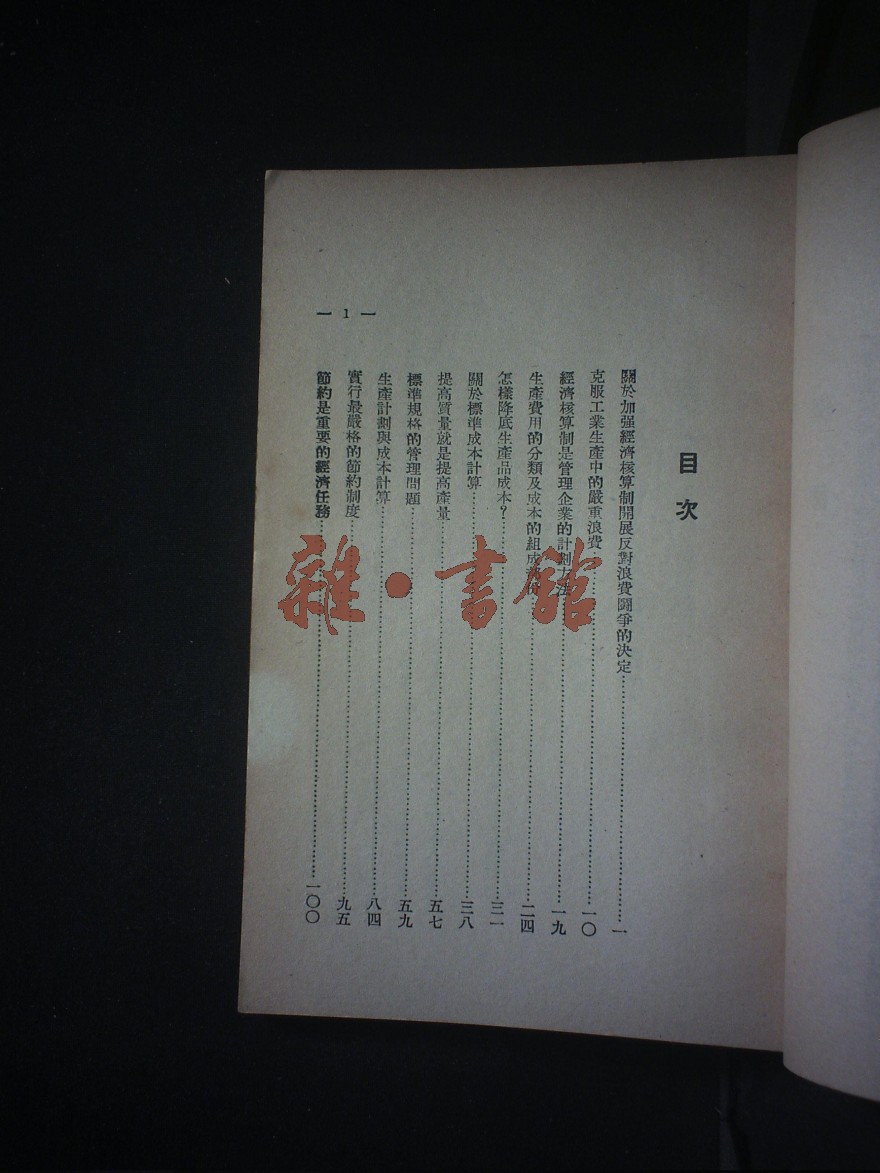 目次
關於加强經濟核算制開展反對浪費鬪爭的決定……一
克服工業生產中的嚴重浪費……一〇
經濟核算制是管理企業的計劃方法……一九
生產費用的分類及成本的組成……二四
怎樣降底生產品成本?……三一
關於標準成本計算……三八
提高質量就是提高產量……五七
標準規格的管理問題……五九
生產計劃與成本計算……八四
實行最嚴格的節約制度……九五
節約是重要的經濟任務……一〇〇
— 1 —
雜·書館